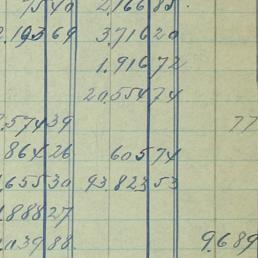 7540 2.16685.
2.19369 3.71620
1.91672
20.55474
.57439 77
86426 60574
.65530 93.82353
.18827
.03988 9.689